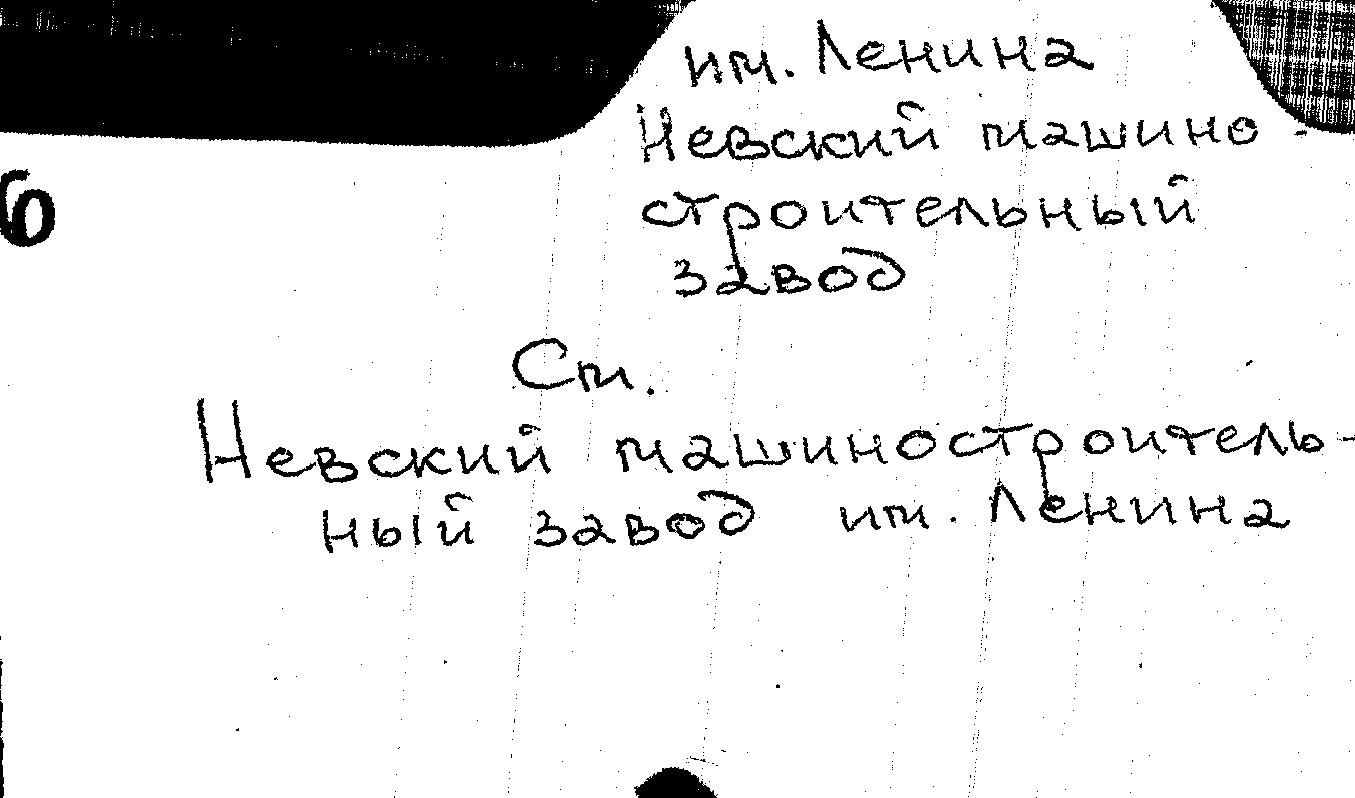 им. Ленина
Невский машино-
строительный
завод
6
См.
Невский машиностроитель-
ный завод им. Ленина